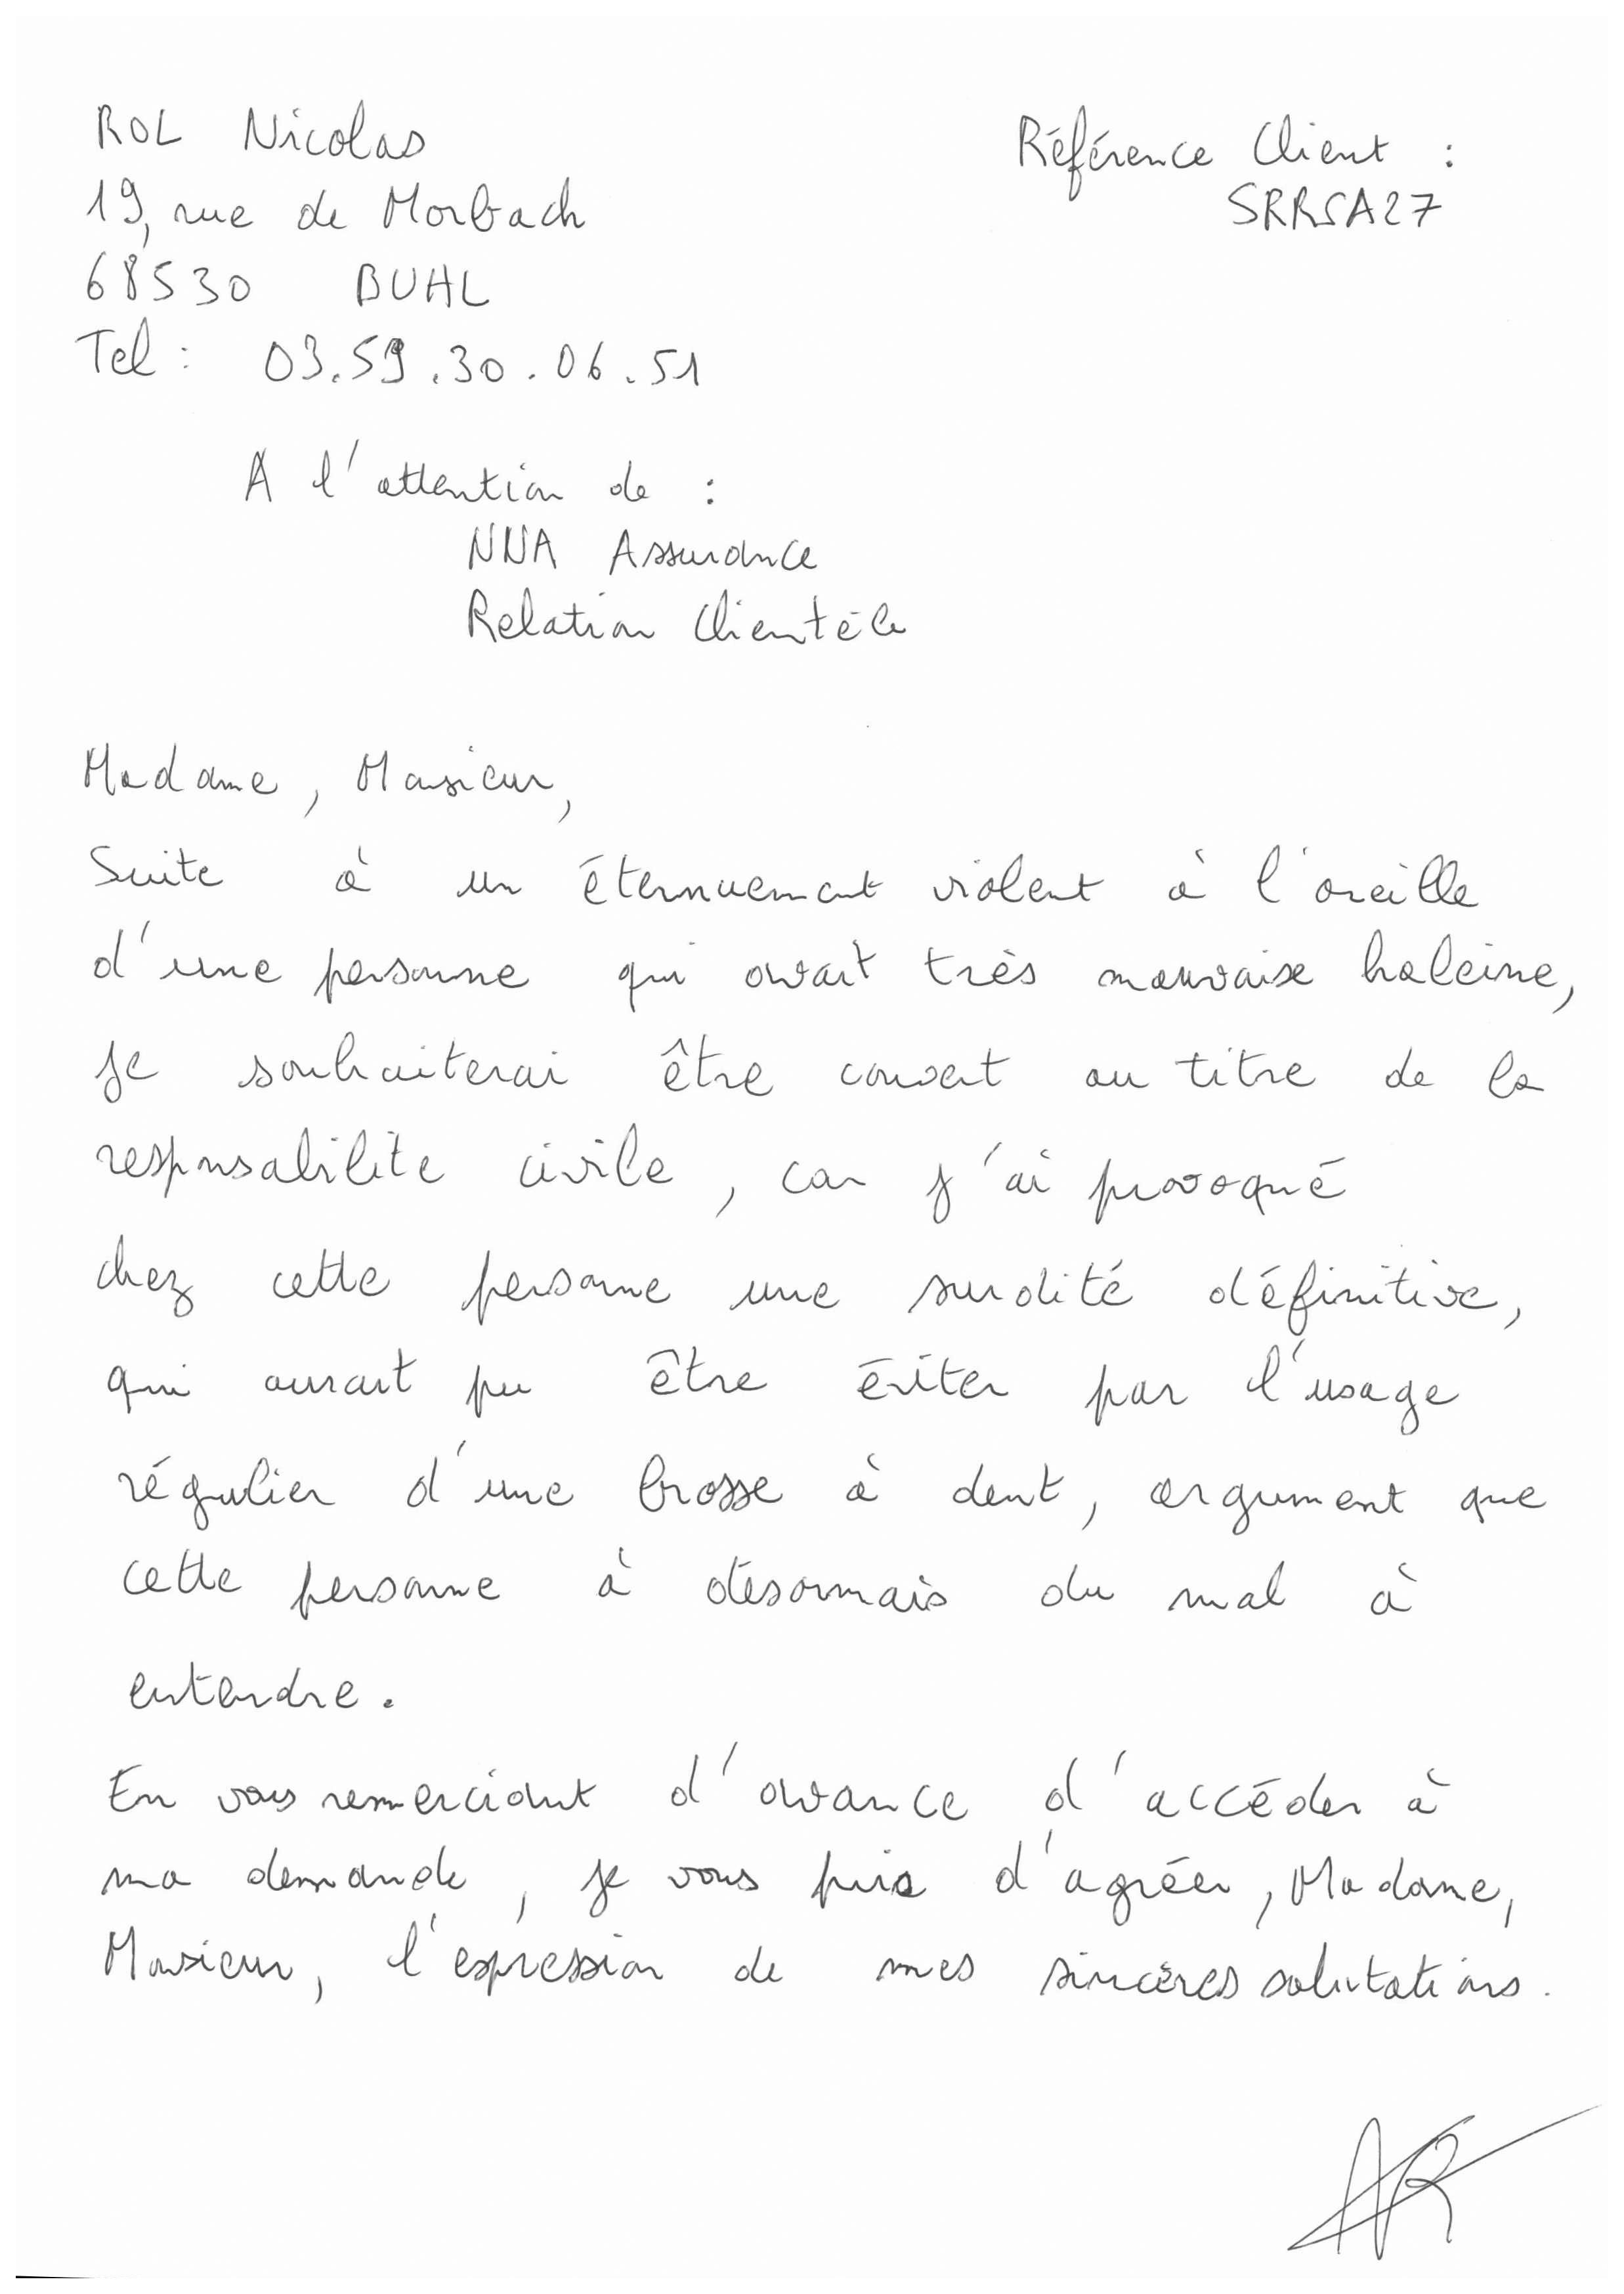 ROL Nicolas
Référence Client :
19, rue de Morbach
SRRSA27
68530 BUHL
Tel : 03.59.30.06.51
A l'attention de :
NNA Assurance
Relation Clientèle
Madame, Monsieur,
Suite à un éternuement violent à l'oreille
d'une personne qui avait très mauvaise haleine,
je souhaiterai être couvert au titre de la
responsabilité civile, car j'ai provoqué
chez cette personne une surdité définitive,
qui aurait pu être éviter par l'usage
régulier d'une brosse à dent, argument que
cette personne à désormais du mal à
entendre.
En vous remerciant d'avance d'accéder à
ma demande, je vous prie d'agréer, Madame,
Monsieur, l'expression de mes sincères salutations.